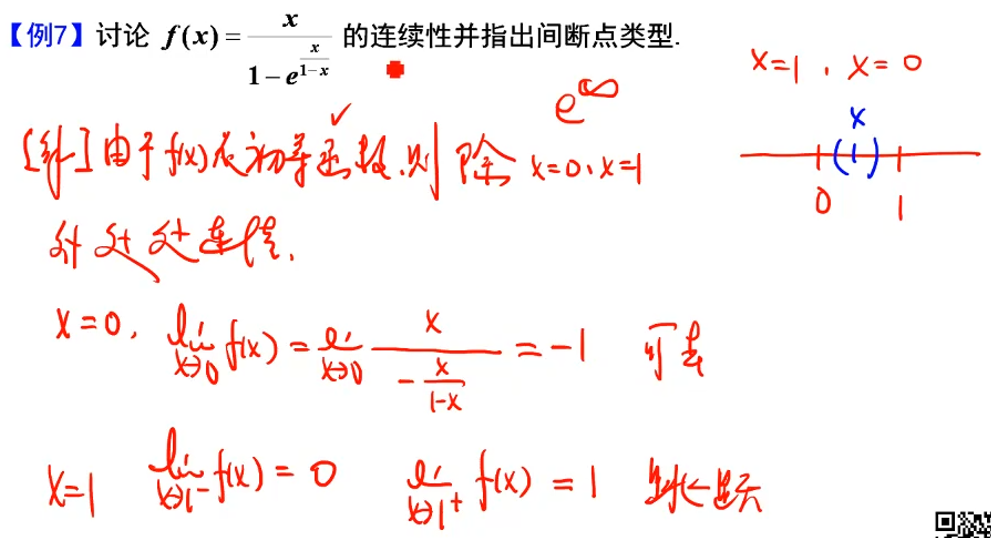 【例7】讨论 f(x) = x / (1 - e^{x/(1-x)}) 的连续性并指出间断点类型.
x=1, x=0
e^∞
[解] 由于f(x)为初等函数,则除 x=0,x=1
x
0 1
外处处连续.
x=0, lim_{x→0} f(x) = lim_{x→0} x / (-x/(1-x)) = -1 可去
x=1 lim_{x→1^-} f(x) = 0 lim_{x→1^+} f(x) = 1 跳跃